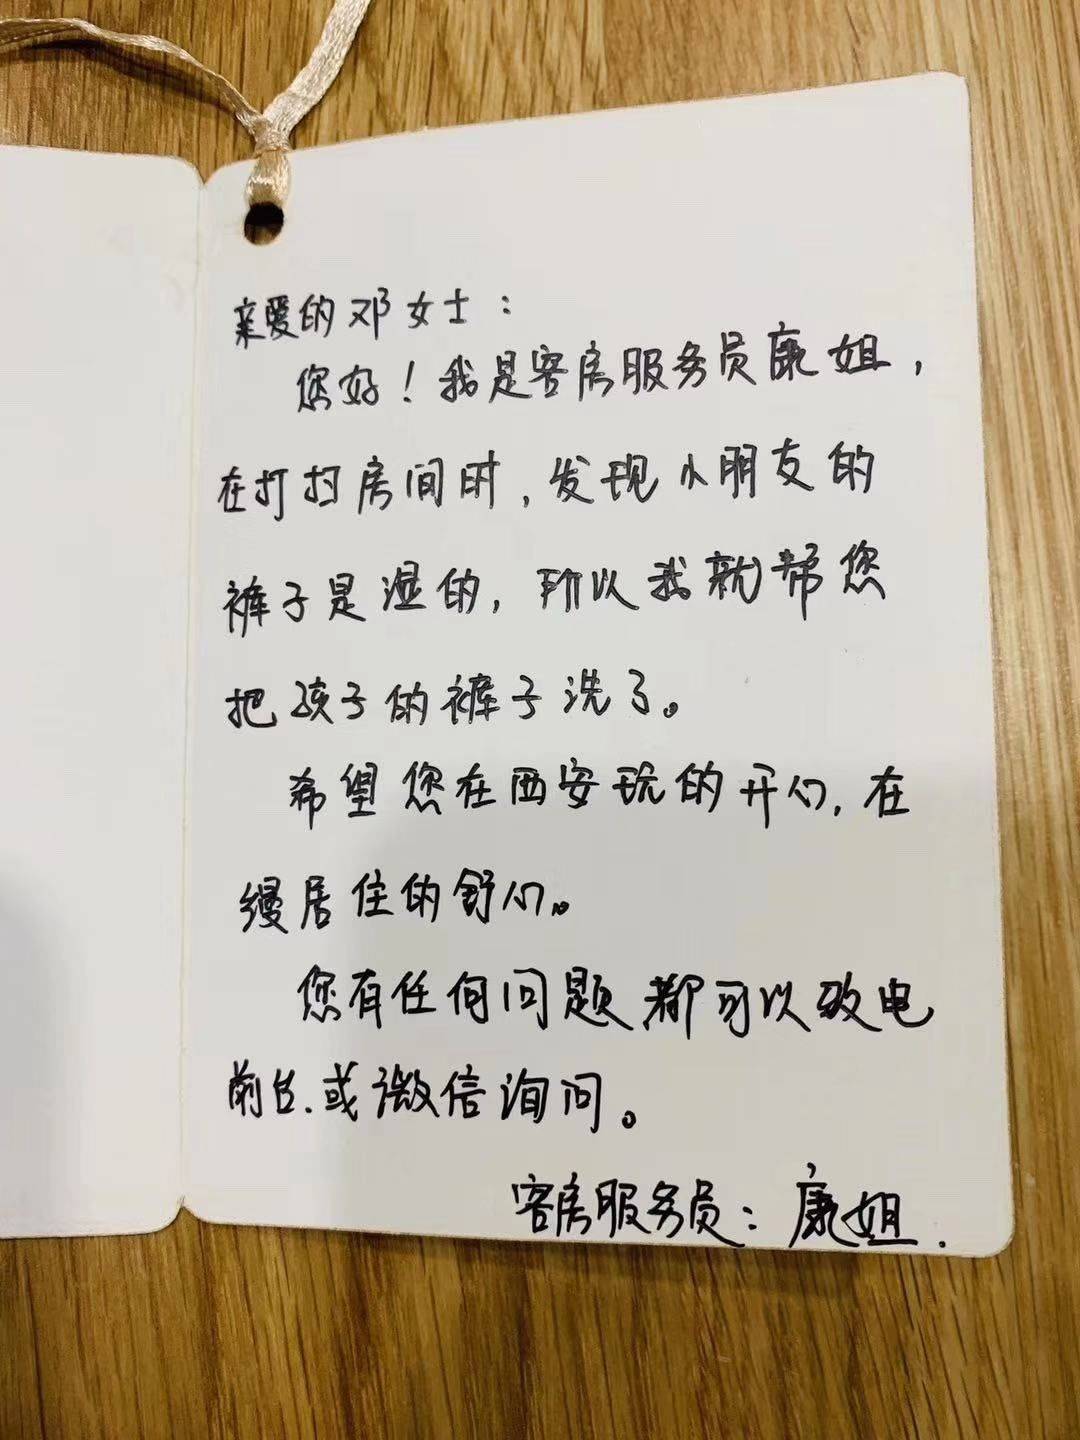 亲爱的邓女士：
您好！我是客房服务员康姐，
在打扫房间时，发现小朋友的
裤子是湿的，所以我就帮您
把孩子的裤子洗了。
希望您在西安玩的开心，在
缦居住的舒心。
您有任何问题都可以致电
前台.或微信询问。
客房服务员：康姐.